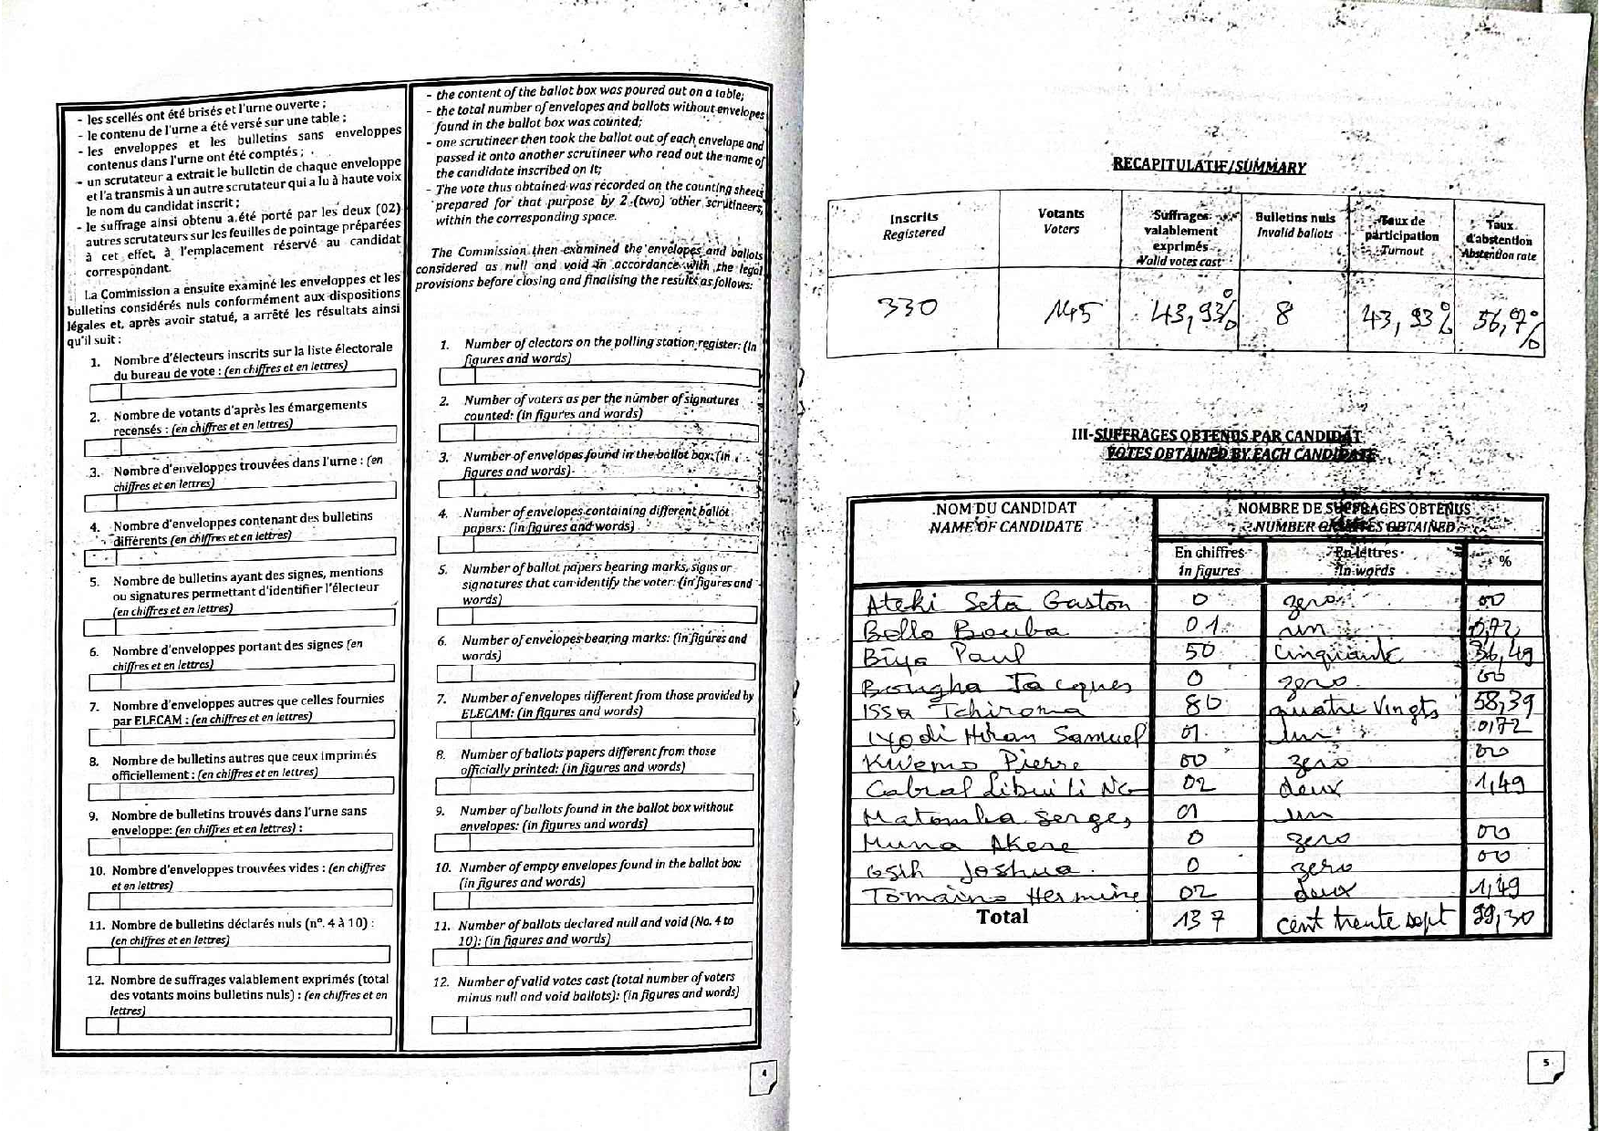 - les scellés ont été brisés et l'urne ouverte ;
- le contenu de l'urne a été versé sur une table ;
- les enveloppes et les bulletins sans enveloppes
contenus dans l'urne ont été comptés ;
- un scrutateur a extrait le bulletin de chaque enveloppe
et l'a transmis à un autre scrutateur qui a lu à haute voix
le nom du candidat inscrit ;
- le suffrage ainsi obtenu a été porté par les deux (02)
autres scrutateurs sur les feuilles de pointage préparées
à cet effet, à l'emplacement réservé au candidat
correspondant.
La Commission a ensuite examiné les enveloppes et les
bulletins considérés nuls conformément aux dispositions
légales et, après avoir statué, a arrêté les résultats ainsi
qu'il suit :
1. Nombre d'électeurs inscrits sur la liste électorale
du bureau de vote : (en chiffres et en lettres)
2. Nombre de votants d'après les émargements
recensés : (en chiffres et en lettres)
3. Nombre d'enveloppes trouvées dans l'urne : (en
chiffres et en lettres)
4. Nombre d'enveloppes contenant des bulletins
différents (en chiffres et en lettres)
5. Nombre de bulletins ayant des signes, mentions
ou signatures permettant d'identifier l'électeur
(en chiffres et en lettres)
6. Nombre d'enveloppes portant des signes (en
chiffres et en lettres)
7. Nombre d'enveloppes autres que celles fournies
par ELECAM : (en chiffres et en lettres)
8. Nombre de bulletins autres que ceux imprimés
officiellement : (en chiffres et en lettres)
9. Nombre de bulletins trouvés dans l'urne sans
enveloppe: (en chiffres et en lettres) :
10. Nombre d'enveloppes trouvées vides : (en chiffres
et en lettres)
11. Nombre de bulletins déclarés nuls (n°. 4 à 10) :
(en chiffres et en lettres)
12. Nombre de suffrages valablement exprimés (total
des votants moins bulletins nuls) : (en chiffres et en
lettres)
- the content of the ballot box was poured out on a table;
- the total number of envelopes and ballots without envelopes
found in the ballot box was counted;
- one scrutineer then took the ballot out of each envelope and
passed it onto another scrutineer who read out the name of
the candidate inscribed on it;
- The vote thus obtained was recorded on the counting sheets
prepared for that purpose by 2 (two) other scrutineers,
within the corresponding space.
The Commission then examined the envelopes and ballots
considered as null and void in accordance with the legal
provisions before closing and finalising the results as follows:
1. Number of electors on the polling station register: (in
figures and words)
2. Number of voters as per the number of signatures
counted: (in figures and words)
3. Number of envelopes found in the ballot box: (in
figures and words)
4. Number of envelopes containing different ballot
papers: (in figures and words)
5. Number of ballot papers bearing marks, signs or
signatures that can identify the voter: (in figures and
words)
6. Number of envelopes bearing marks: (in figures and
words)
7. Number of envelopes different from those provided by
ELECAM: (in figures and words)
8. Number of ballots papers different from those
officially printed: (in figures and words)
9. Number of ballots found in the ballot box without
envelopes: (in figures and words)
10. Number of empty envelopes found in the ballot box:
(in figures and words)
11. Number of ballots declared null and void (No. 4 to
10): (in figures and words)
12. Number of valid votes cast (total number of voters
minus null and void ballots): (in figures and words)
4
RECAPITULATIF/SUMMARY
Inscrits Registered
Votants Voters
Suffrages valablement exprimés Valid votes cast
Bulletins nuls Invalid ballots
Taux de participation Turnout
Taux d'abstention Abstention rate
330 145 43,93% 8 43,93% 56,07%
III-SUFFRAGES OBTENUS PAR CANDIDAT
VOTES OBTAINED BY EACH CANDIDATE
NOM DU CANDIDAT NOMBRE DE SUFFRAGES OBTENUS
NAME OF CANDIDATE NUMBER OF VOTES OBTAINED
En chiffres En lettres %
in figures In words
Ateki Seta Gaston 0 zero 00
Bello Bouba 01 un 0,72
Biya Paul 50 Cinquante 36,49
Bougha Jacques 0 zero 00
Issa Tchiroma 80 quatre Vingts 58,39
Iyodi Hiran Samuel 01 un 0,72
Kwemo Pierre 00 zero 00
Cabral Libii Li NG 02 deux 1,49
Matomba Serges 01 un
Muna Akere 0 zero 00
Osih Joshua 0 zero 00
Tomaino Hermine 02 deux 1,49
Total 137 cent trente sept 99,30
5